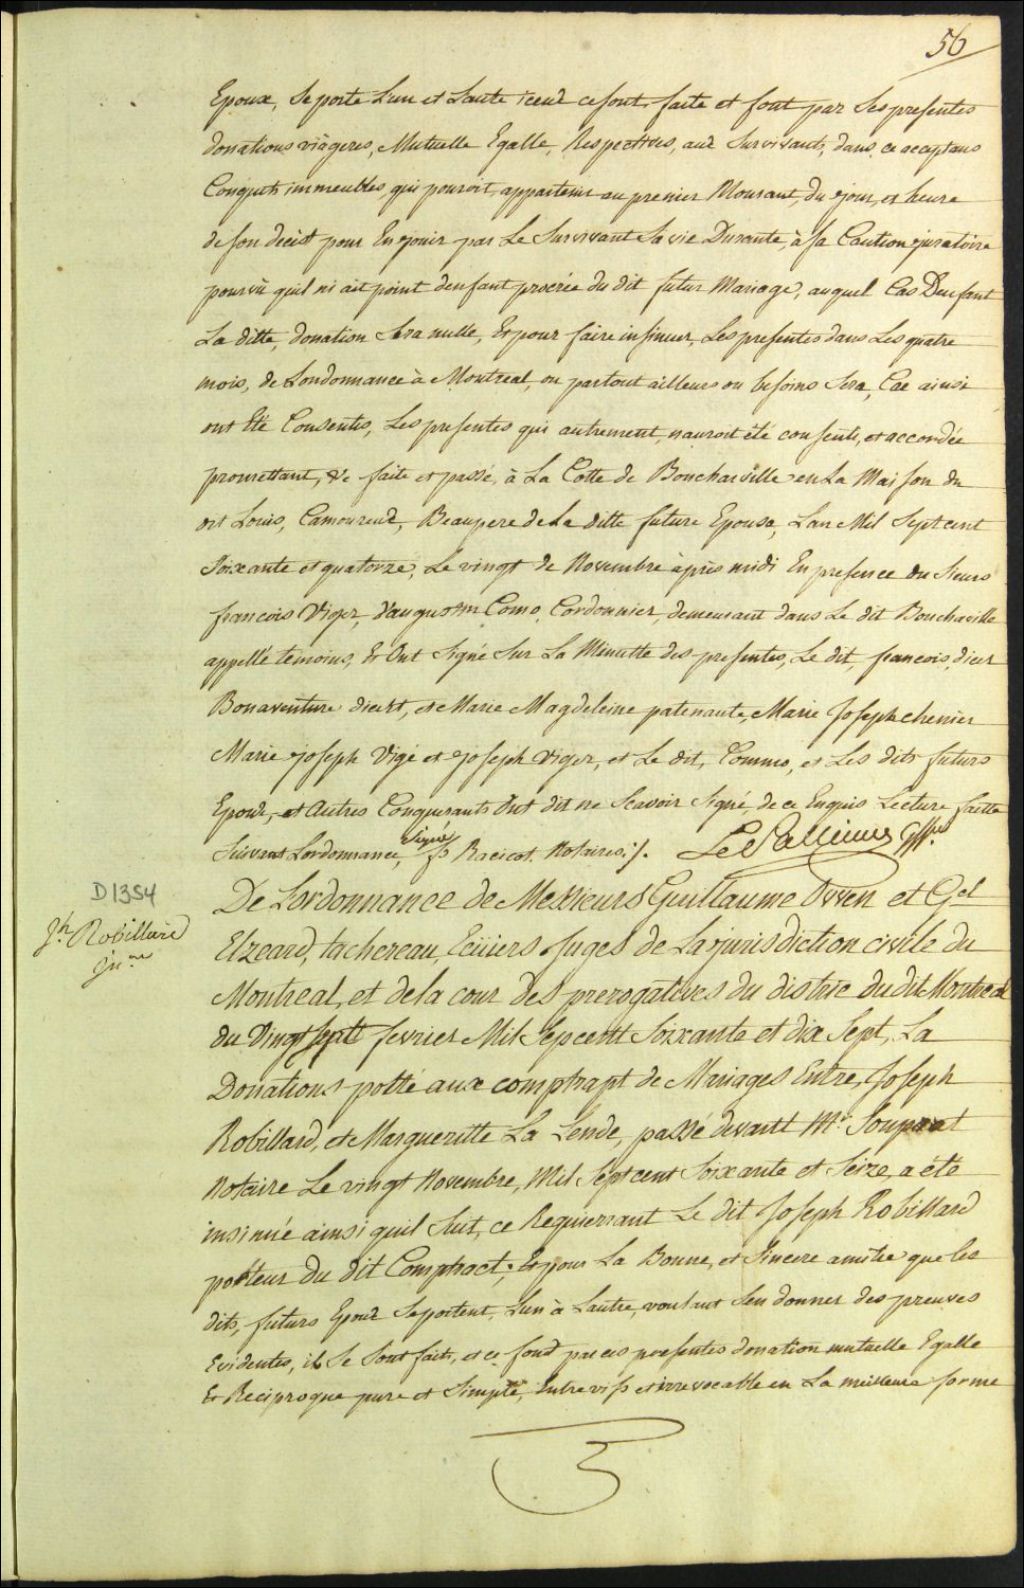 56
Epoux, Se porte L'un et Lautre iceux ce sont faite et font par Ses presentes
donations viâgeres, Mutuelle Egalle, Respectives, aux Survivants, dans, ce acceptans
Conquets immeubles, qui pouroit, appartenir au premier Mourant, du jour, et heure
de son decest pour En jouir par Le Survivant Sa vie Durante, à sa Caution juratoire
pourvû quil ni ait point denfant procréé du dit futur Mariage, auquel Cas Denfant
La ditte, donation Sera nulle, Et pour faire insinuer, Les presentes dans Les quatre
mois, de Lordonnance à Montreal, ou partout ailleurs ou besoins Sera, Car ainsi
ont Eté Consentis, Les presentes qui autrement nauroit été consenti, et accordée
promettant, &c faite et passé, à La Cotte de Boucharville en La Maison du
dit Louis, Camoureux, Beaupere de La ditte future Epouse, Lan Mil Sept cent
Soixante et quatorze, Le vingt de Novembre àprès midi En presence du Sieurs
francois Viger, Como, Cordonnier, demeurant dans Le dit Bouchaville
appellé temoins, Et Ont Signé Sur La Minutte des presentes, Le dit, francois, dicert
Bonaventure dicert, et Marie Magdeleine patenaute, Marie Joseph chenier
Marie joseph Vigé et joseph Viger, et Le dit, Commo, et Les dits futurs
Epoux, et Autres Conquerants Ont dit ne Scavoir Signé, de ce Enquis Lecture faitte
Suivant Lordonnance, Signé fs Racicot. Notaires ./. LePallieur Gffier
D1354
Jh Robillard
De Lordonnance de Messieurs Guillaume Owen et Gel
Elzeard, tachereau, Ecuiers Juges de La jurisdiction civile du
Montreal, et de la cour des prerogatives du distric du dit Montreal
du Vingt Sept fevrier Mil Sepcentt Soixante et dix Sept, La
Donations potté aux comptrapt de Mariages Entre, Joseph
Robillard, et Margueritte La Lende, passé devantt Mr. Souprant
Notaire Le vingt Novembre, Mil Sept cent Soixante et Seize, a été
insinüé ainsi quil Suit, ce Requerrant Le dit Joseph Robillard
porteur du dit Comptract; Et pour La Bonne, et Sincere amitie que les
dits, futurs Epoux Se portent, Lun à Lautre, voulant Sen donner des preuves
Evidentes, il Se Sont faits, et ce fond par ces presentes donation mutuelle Egalle
Et Reciproque pure et Simple, Entre vifs et irrevocable en La meilleure forme